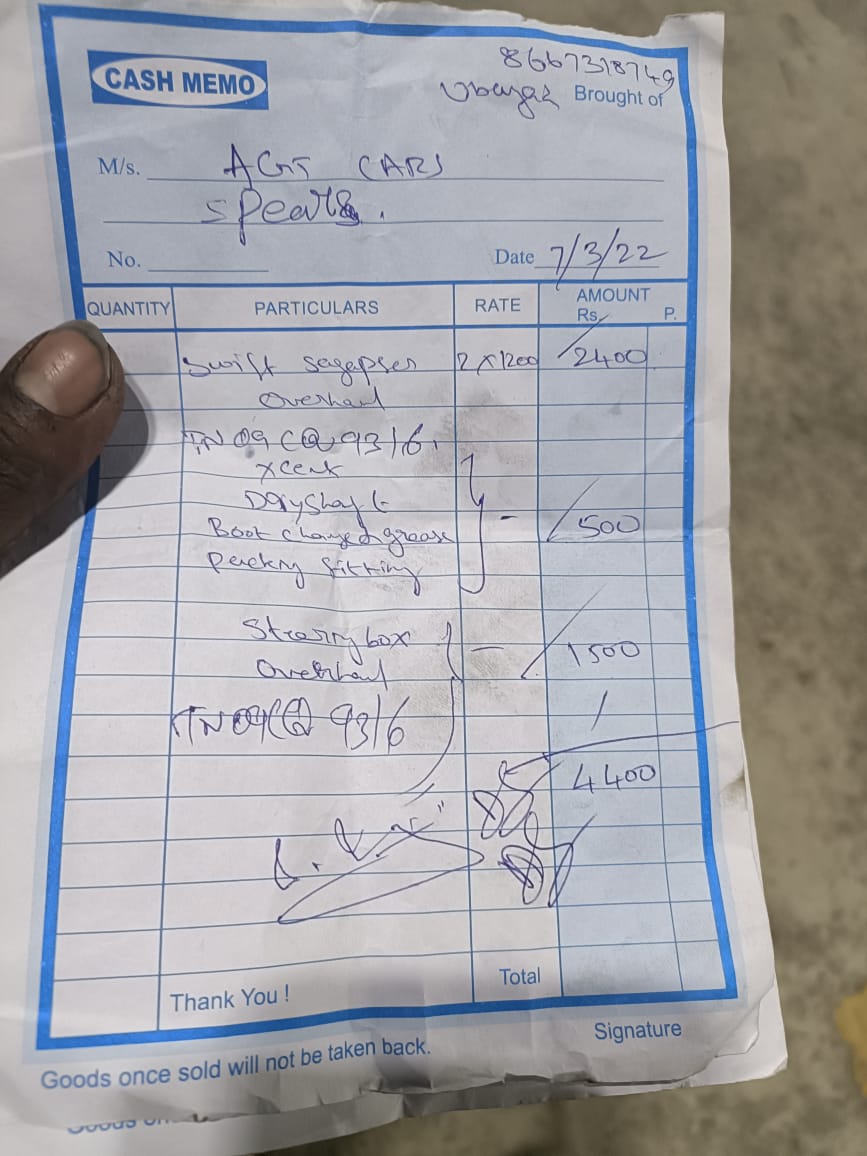 8667318749
CASH MEMO
Brought of
M/s. AGS CARS
Spears.
No. Date 7/3/22
QUANTITY PARTICULARS RATE AMOUNT
Rs. P.
Swift 2x1200 2400
Overhaul
TN 09 CQ 9316.
Xcent
Boot changed grease 500
Packing fitting
box 1500
Overhaul
TN 09 CQ 9316
4400
Total
Thank You !
Signature
Goods once sold will not be taken back.